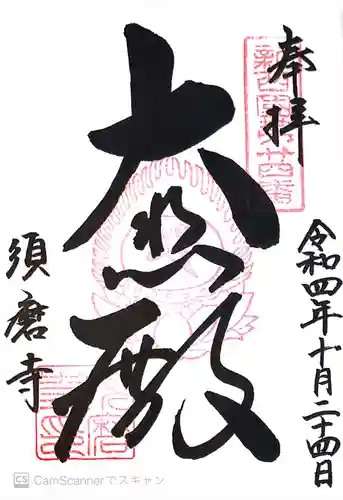 奉拝
新西国第廿四番
令和四年十月二十四日
大悲殿
須磨寺
CS CamScannerでスキャン